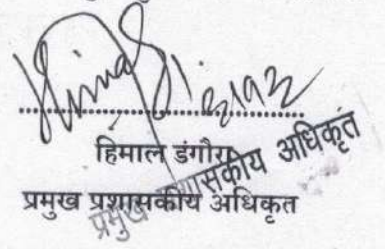 हिमाल डंगौरा
प्रमुख प्रशासकीय अधिकृत
प्रमुख प्रशासकीय अधिकृत